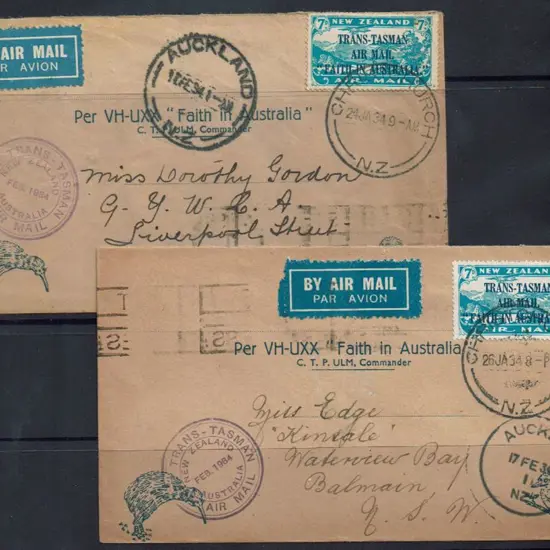 AIR MAIL
AVION
AUCKLAND
17 FE 34
N.Z
7D NEW ZEALAND
TRANS-TASMAN
AIR MAIL
FAITH IN AUSTRALIA
AIR MAIL
Per VH-UXX "Faith in Australia"
C. T. P. ULM, Commander
CHRISTCHURCH
24 JA 34 9-AM
N.Z
TRANS-TASMAN
NEW ZEALAND
FEB. 1934
AUSTRALIA
AIR MAIL
Miss Dorothy Gordon
G. Y. W. C. A
Liverpool Street
BY AIR MAIL
PAR AVION
7D NEW ZEALAND
TRANS-TASMAN
AIR MAIL
FAITH IN AUSTRALIA
AIR MAIL
Per VH-UXX "Faith in Australia
C. T. P. ULM, Commander
26 JA 34
N.Z
TRANS-TASMAN
NEW ZEALAND
FEB. 1934
AUSTRALIA
AIR MAIL
Miss Edge
"Kinsale"
Waterview Bay
Balmain
N. S. W.
AUCK
17 FE 3
NZ